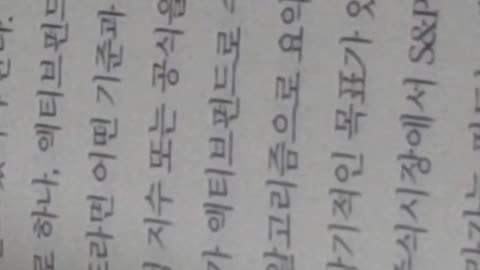 로 하나, 액티브펀드
드라면 어떤 기준과
지수 또는 공식을
가 액티브펀드로
알고리즘으로 요의
기적인 목표가 있
식시장에서 S&P